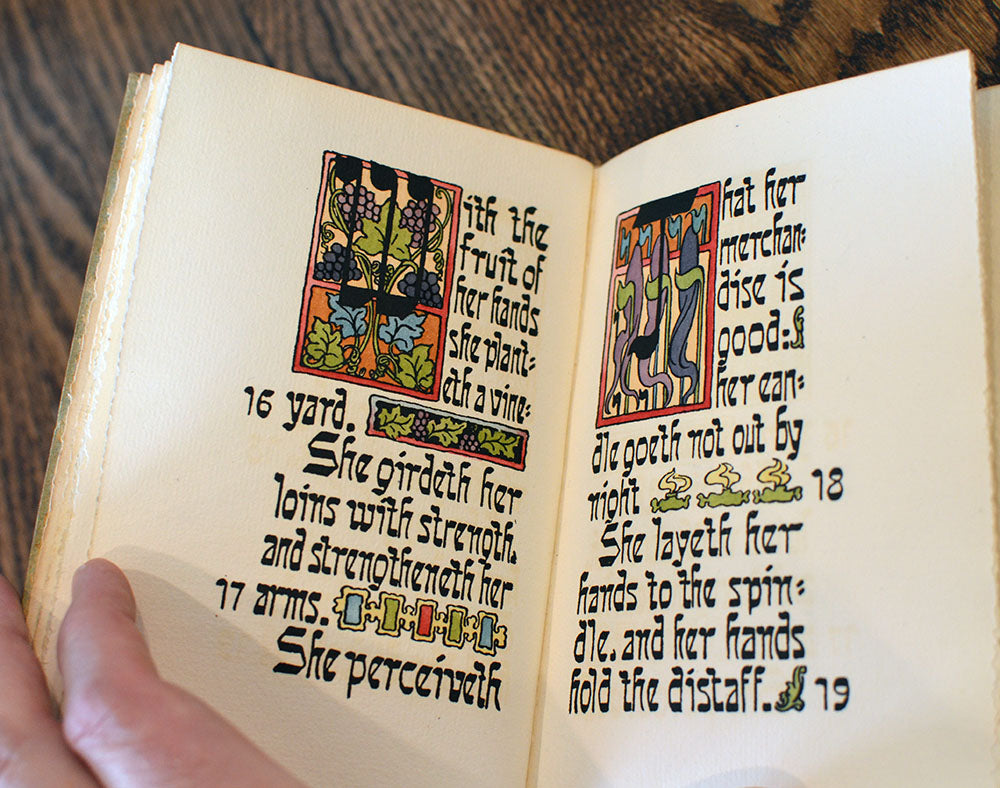 With the
fruit of
her hands
she plant=
eth a vine=
16 yard.
She girdeth her
loins with strength.
and strengtheneth her
17 arms.
She perceiveth
That her
merchan=
dise is
good:
her can=
dle goeth not out by
night 18
She layeth her
hands to the spin=
dle. and her hands
hold the distaff. 19